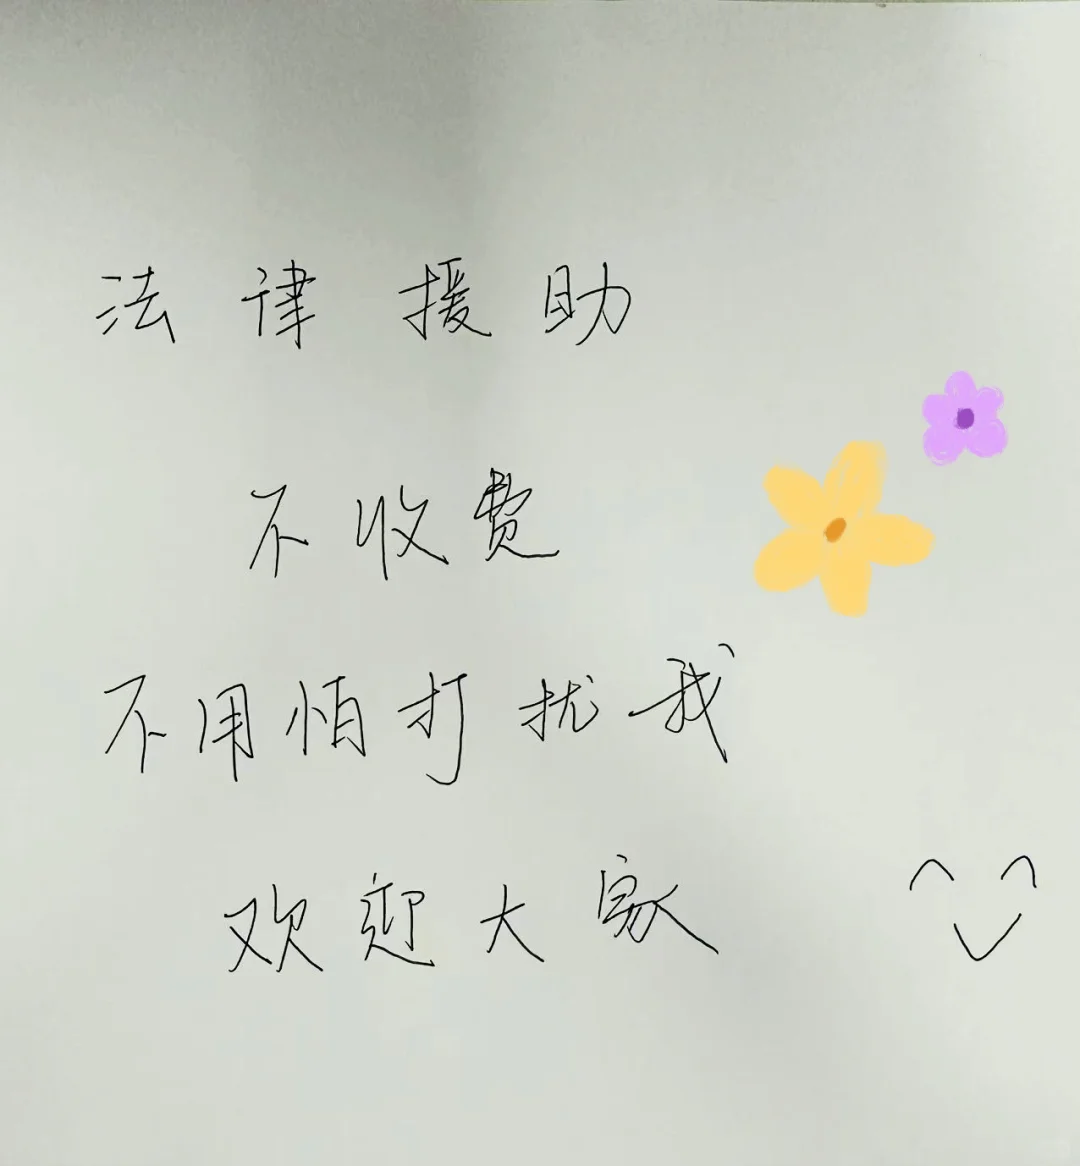 法律援助
不收费
不用怕打扰我
欢迎大家